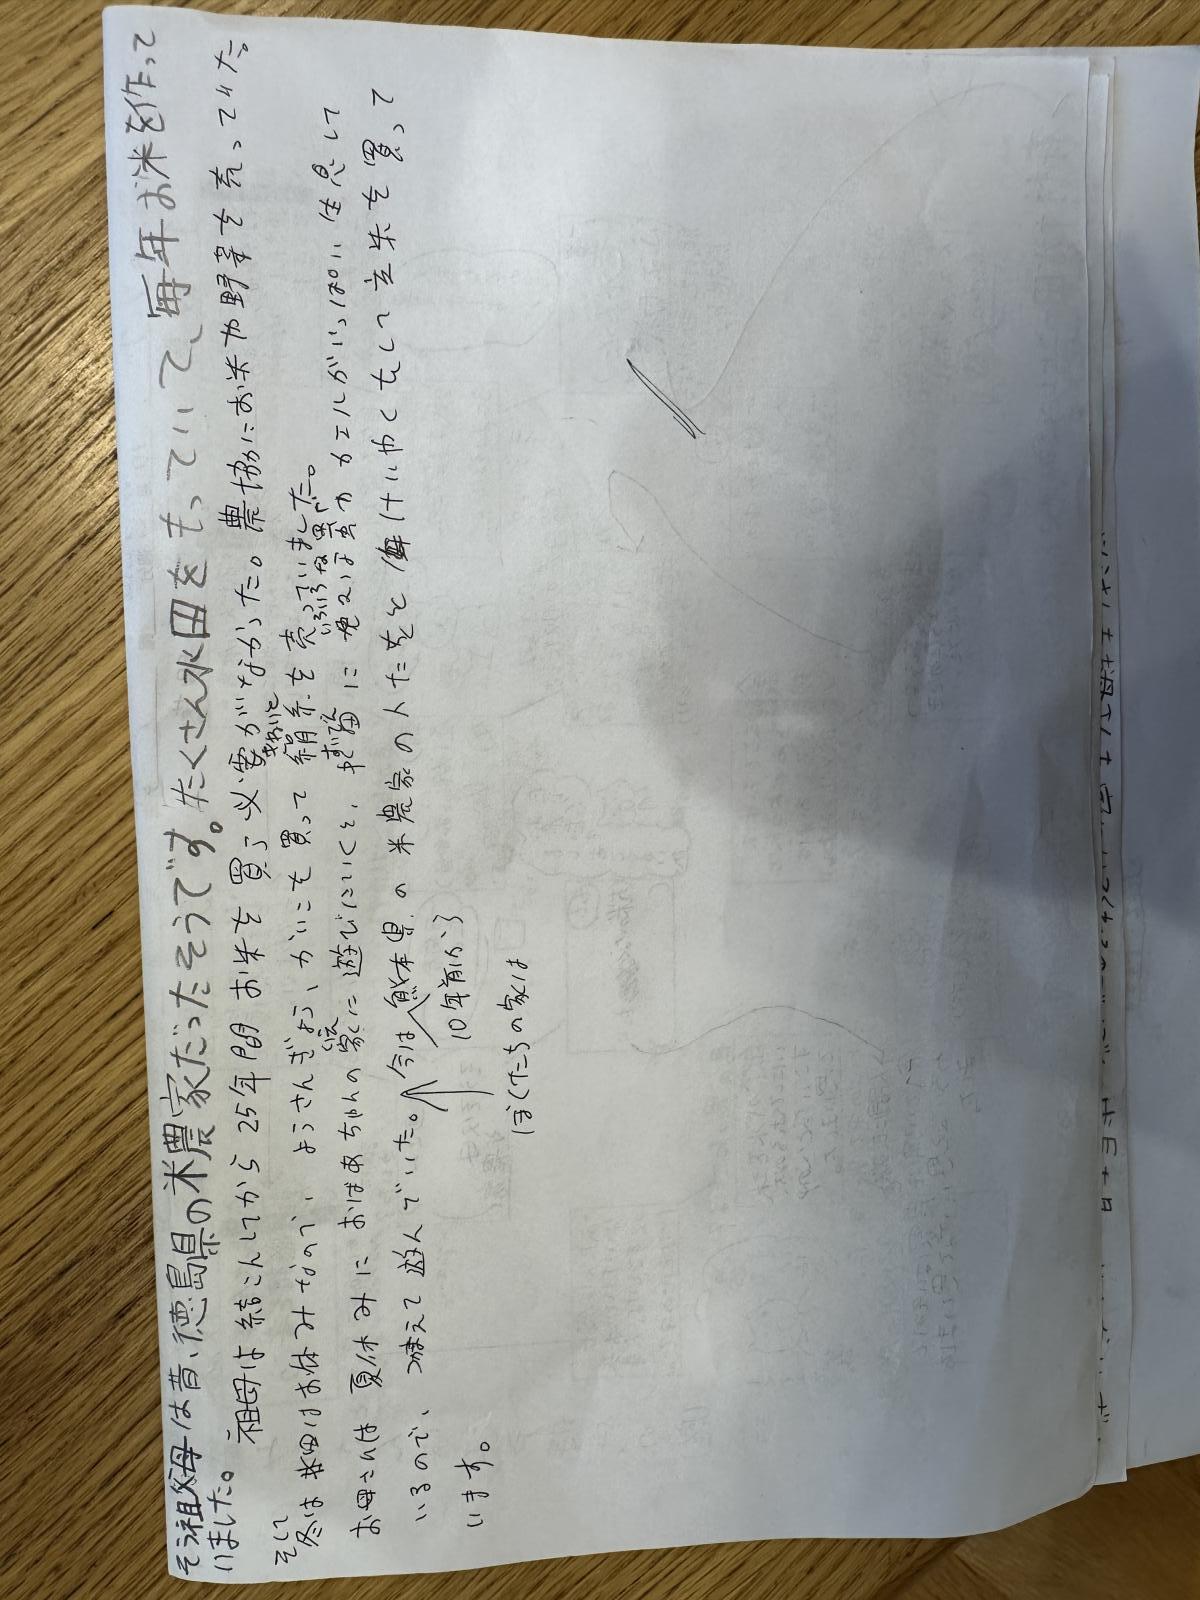 そう祖父母は昔、徳島県の米農家だったそうです。たくさん水田をもっていて、毎年お米を作って
いました。
祖母は結こんしてから25年間お米を買う必要がなかった。農協にお米や野菜を売ってた。
そして
きぬいと
冬は水田はお休みなので、ようさんぎょう、かいこを買って絹糸を売っていました。
いえ
すい泡
いろいろな
お母さんは夏休みにおばあちゃんの家に遊びにいくと、に虫やカエルがいっぱい生息して
いるので、つかまえて遊んでいた。今は熊本県の米農家の人たちとけいやくをして玄米を買って
います。
10年前から
ぼくたちの家は